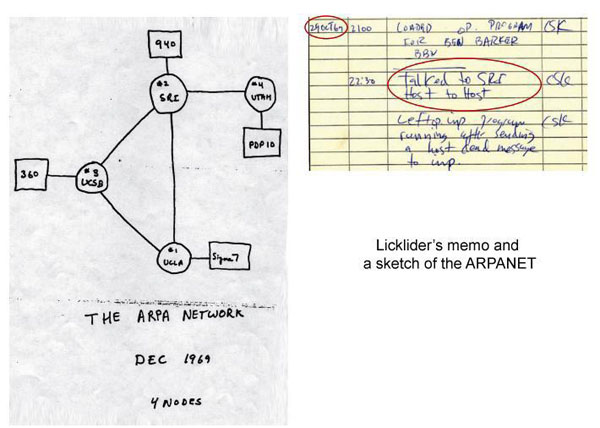 940
#2
SRI
#4
UTAH
PDP10
360
#3
UCSB
#1
UCLA
Sigma7
THE ARPA NETWORK
DEC 1969
4 NODES
29OCT69 2100 LOADED OP. PROGRAM CSK
FOR BEN BARKER
BBN
22:30 Talked to SRI CSK
Host to Host
Left op. imp program CSK
running after sending
a host dead message
to imp.
Licklider's memo and
a sketch of the ARPANET